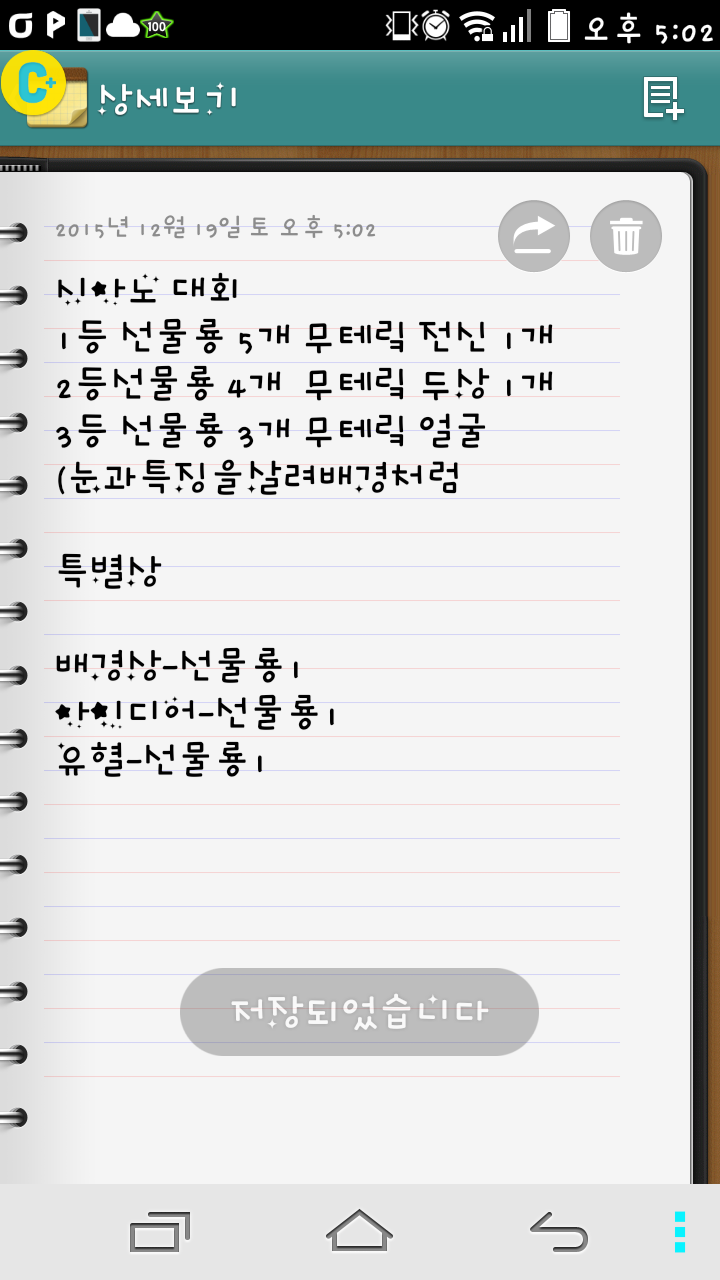 100
오후 5:02
C+
상세보기
2015년 12월 19일 토 오후 5:02
시아노 대회
1등 선물룡 5개 무테릭 전신 1개
2등선물룡 4개 무테릭 두상 1개
3등 선물룡 3개 무테릭 얼굴
(눈과특징을살려배경처럼
특별상
배경상-선물룡1
아이디어-선물룡1
유혈-선물룡1
저장되었습니다